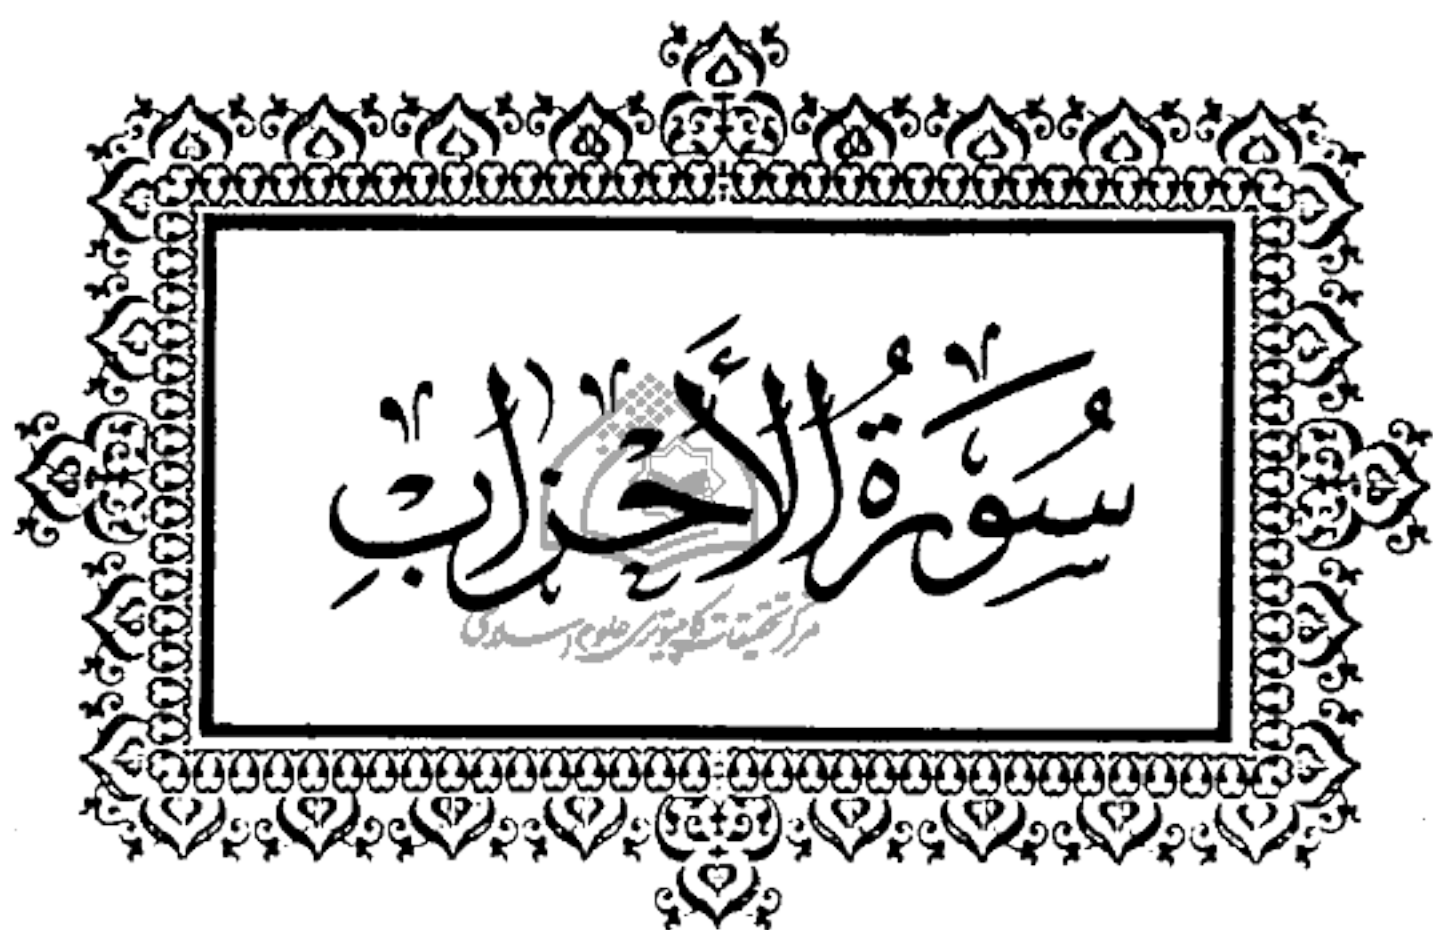 سُورَةُ الأَحْزَابِ
مرکز تحقیقات کامپیوتری علوم اسلامی